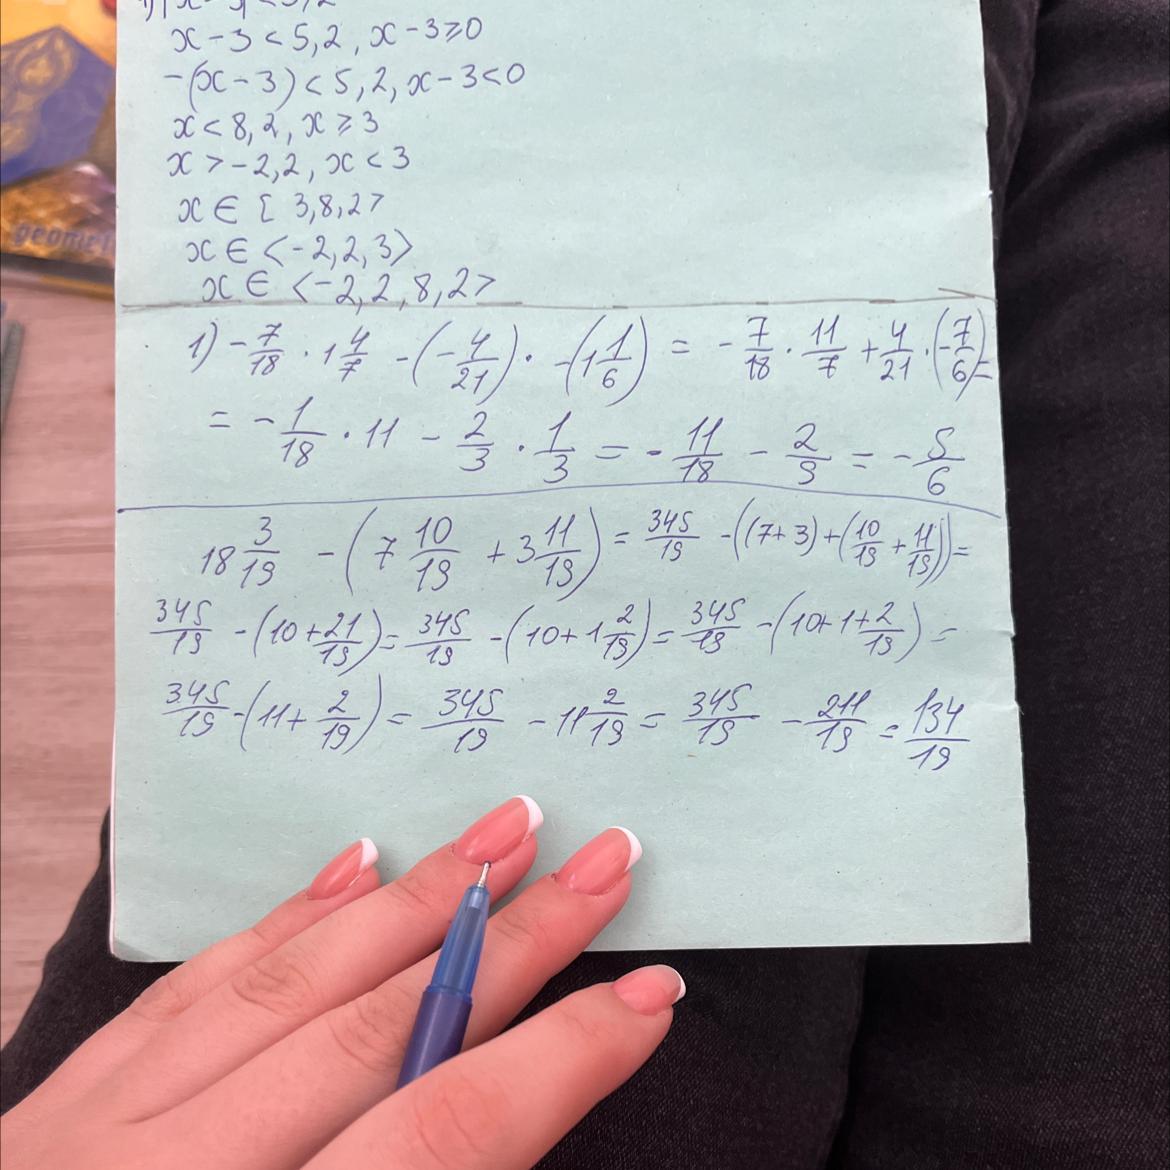 x-3<5,2, x-3≥0
-(x-3)<5,2, x-3<0
x<8,2, x≥3
x>-2,2, x<3
x∈[3,8,2>
x∈<-2,2,3>
x∈<-2,2,8,2>
1) -7/18 · 1 4/7 - (-4/21) · -(1 1/6) = -7/18 · 11/7 + 4/21 · (-7/6) =
= -1/18 · 11 - 2/3 · 1/3 = -11/18 - 2/9 = -5/6
18 3/19 - (7 10/19 + 3 11/19) = 345/19 - ((7+3) + (10/19 + 11/19)) =
345/19 - (10 + 21/19) = 345/19 - (10 + 1 2/19) = 345/19 - (10 + 1 + 2/19) =
345/19 - (11 + 2/19) = 345/19 - 11 2/19 = 345/19 - 211/19 = 134/19